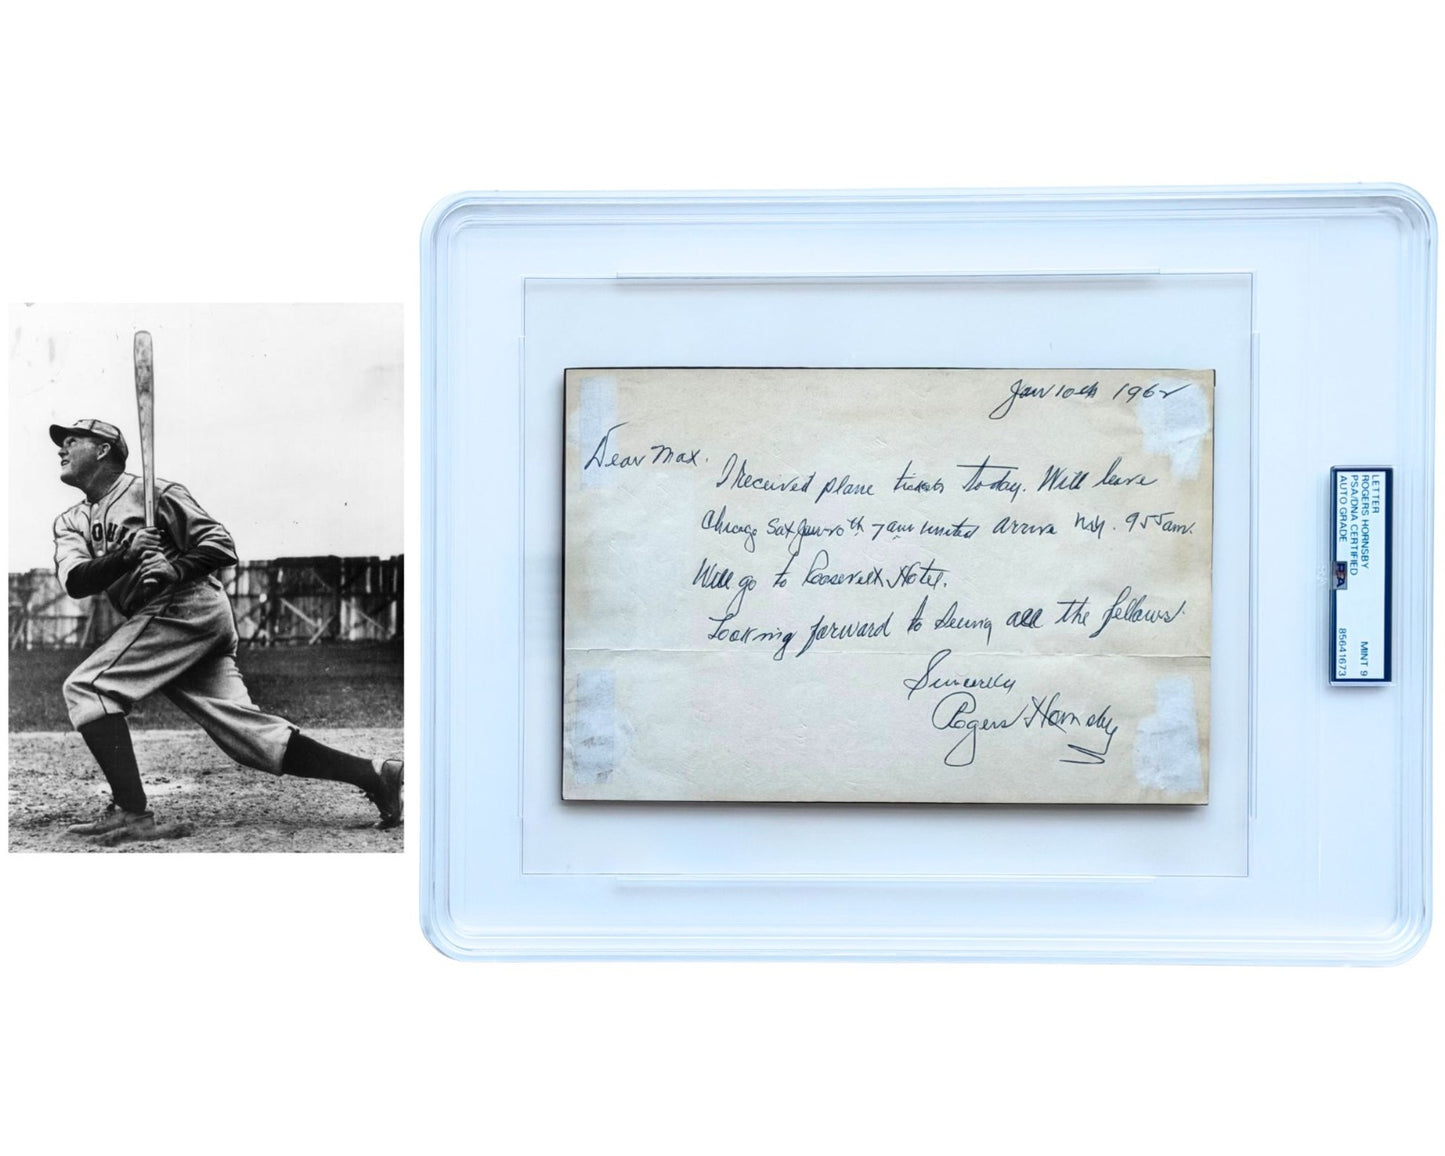 Jan 10th 1962
Dear Max.
I received plane tickets today. Will leave
Chicago Sat Jan 20th 7 am United arrive N.Y. 9 55 am.
Will go to Roosevelt Hotel.
Looking forward to seeing all the fellows.
Sincerely
Rogers Hornsby
LETTER
ROGERS HORNSBY
PSA/DNA CERTIFIED
AUTO GRADE MINT 9
PSA 85641673